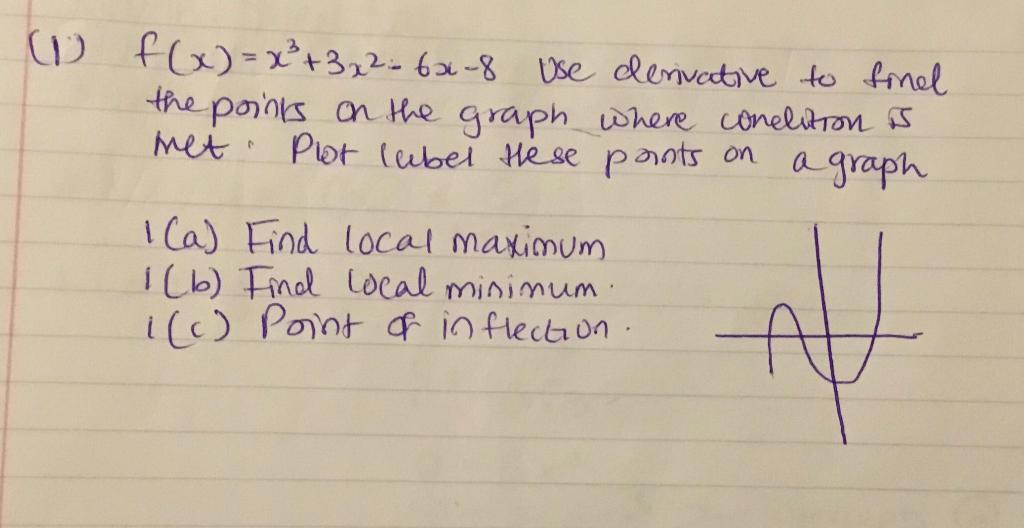 (1) f(x) = x³+3x²-6x-8 Use derivative to find
the points on the graph where condition is
met. Plot label these points on a graph
1(a) Find local maximum
1(b) Find local minimum.
1(c) Point of inflection.